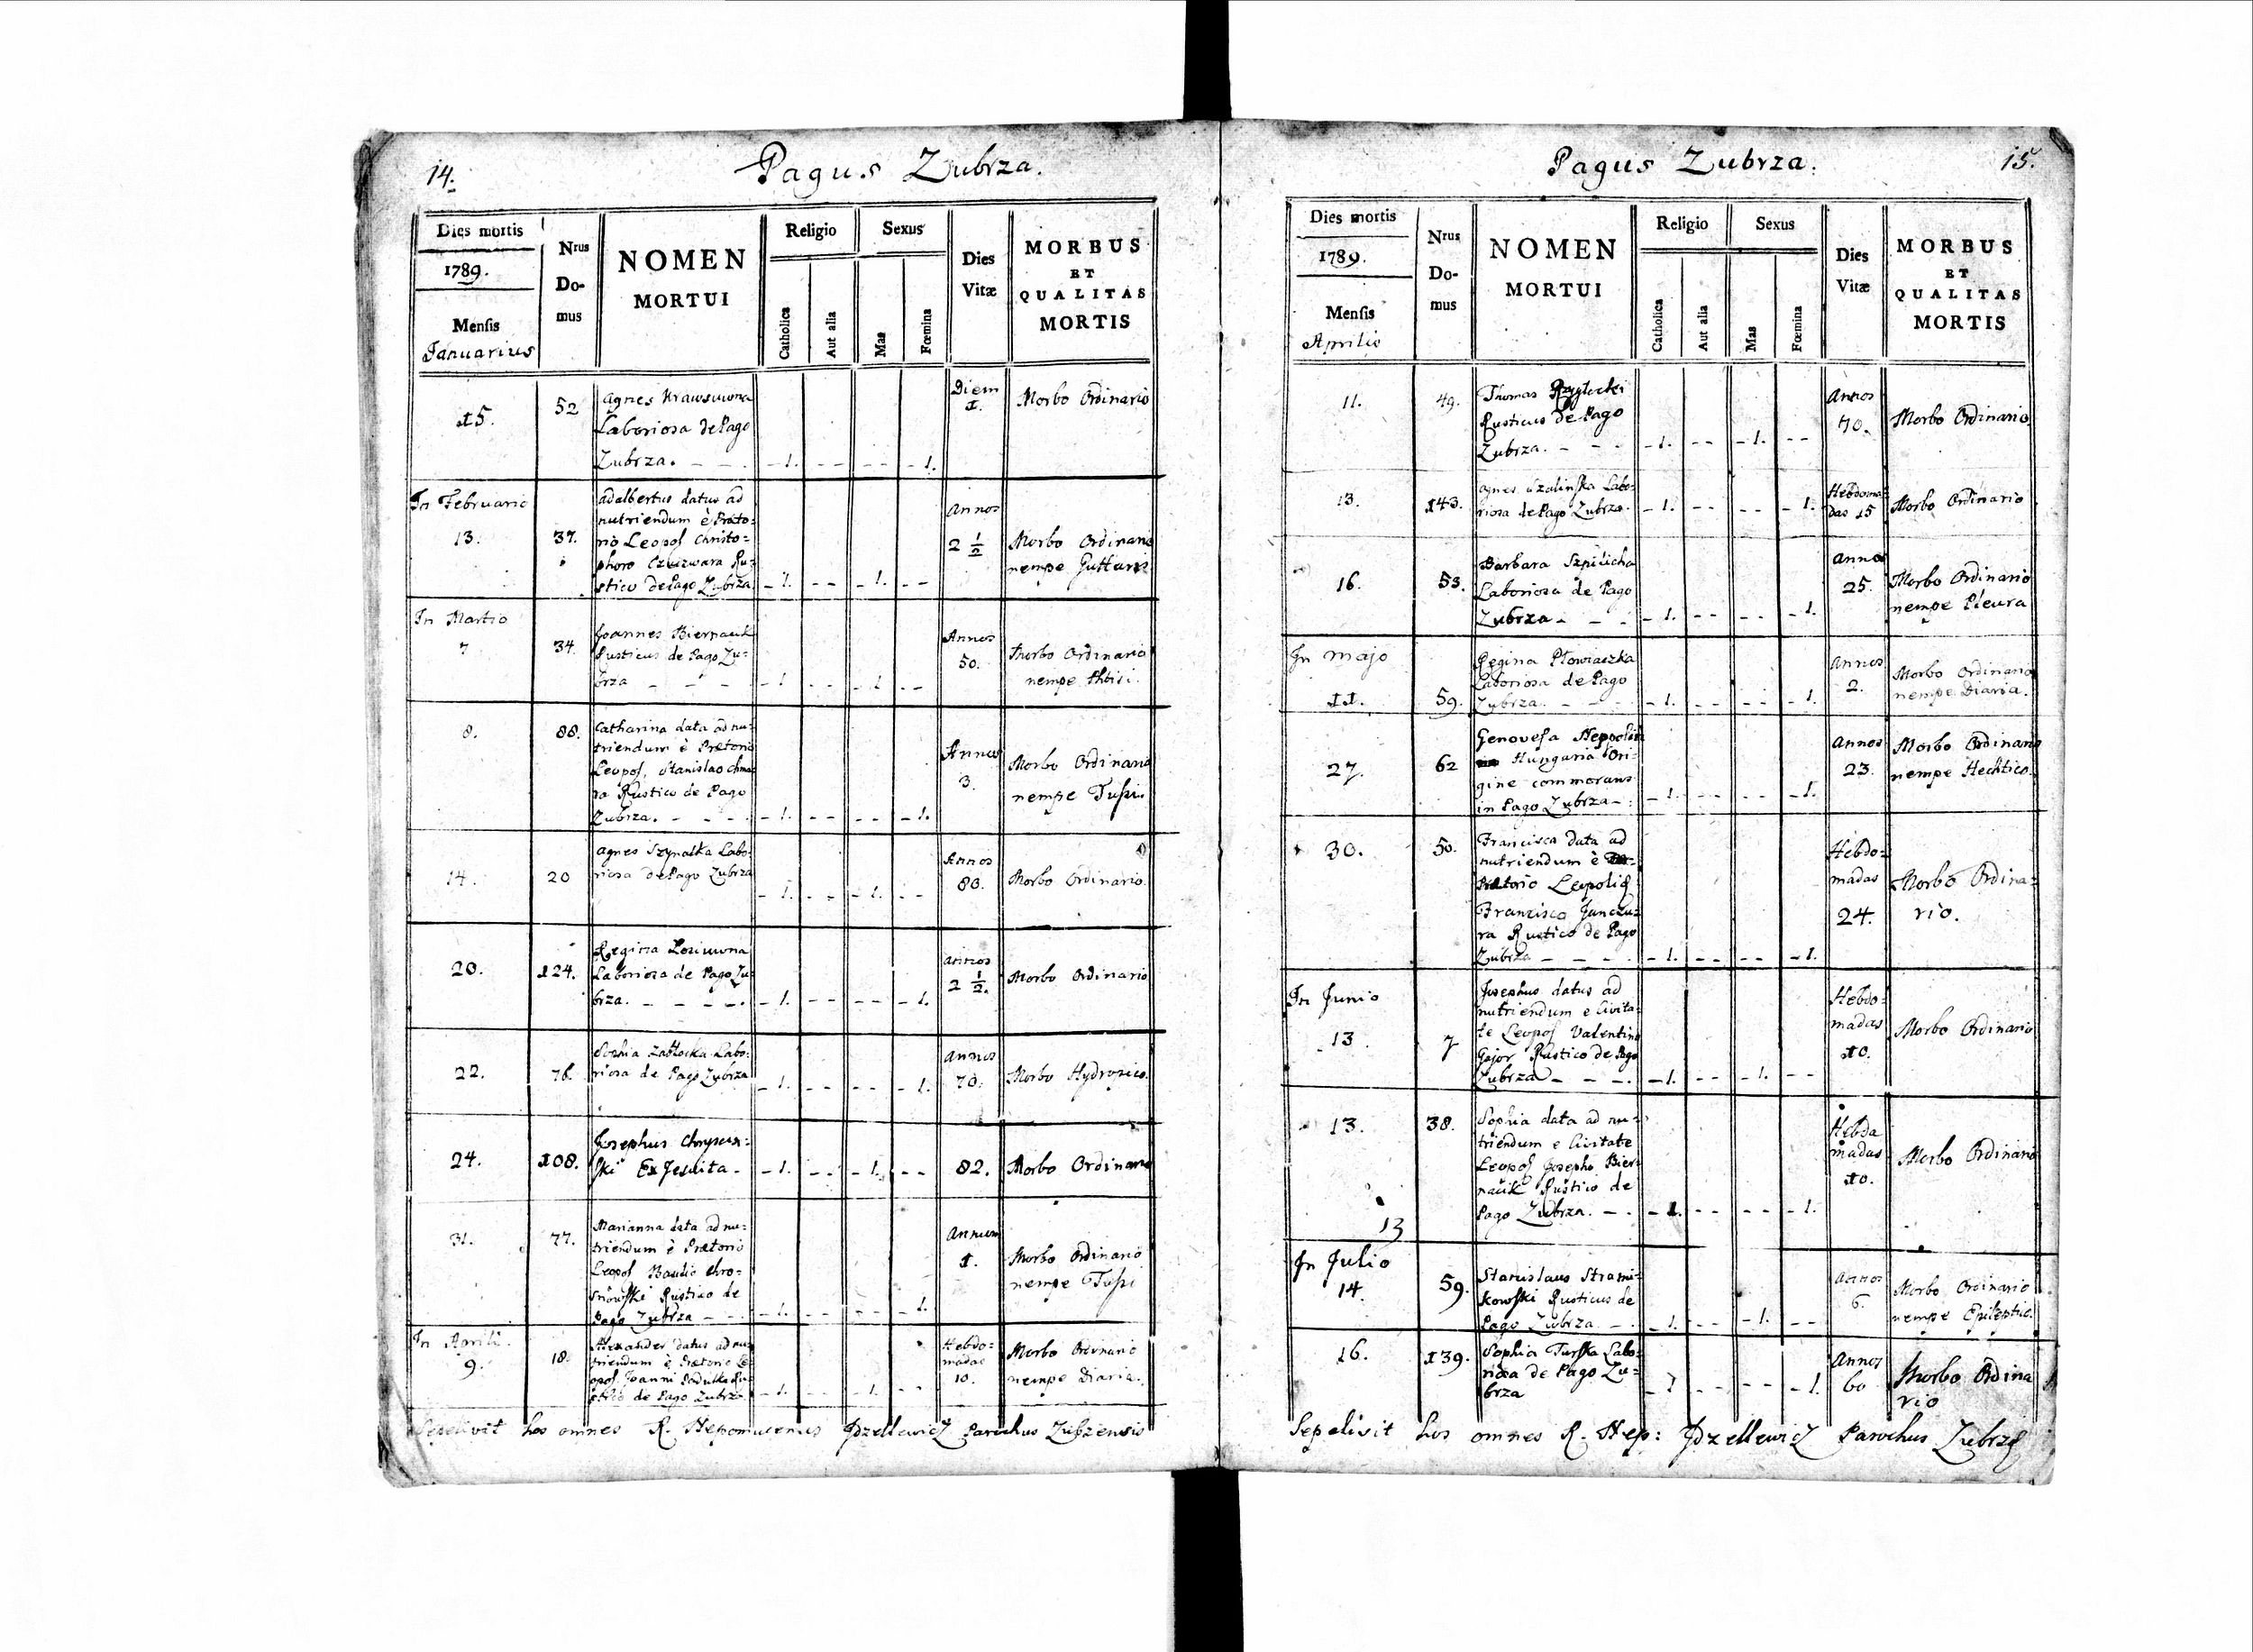 14.
Pagus Zubrza.
Dies mortis
1789.
Mensis
Januarius
Nrus
Do-
mus
NOMEN
MORTUI
Religio
Catholica
Aut alia
Sexus
Mas
Fœmina
Dies
Vitæ
MORBUS
ET
QUALITAS
MORTIS
15.
52
Agnes
Laboriosa de Pago
Zubrza. - - .
- 1. - - - - - 1.
Diem
1.
Morbo Ordinario
In Februario
13.
37.
Adalbertus datus ad
nutriendum è Præto=
rio Leopol Christo=
phoro Czuzwara Ru=
stico de Pago Zubrza
- 1. - - - 1. - -
Annos
2 1/2
Morbo Ordinario
nempe
In Martio
7
34.
Joannes Biernacik
Rusticus de Pago Zu=
brza - - -
- 1 - - - 1 - -
Annos
50.
Morbo Ordinario
nempe
8.
88.
Catharina data ad nu=
triendum è Prætorio
Leopol, Stanislao Chma=
ra Rustico de Pago
Zubrza. - - - .
- 1. - - - - - 1.
Annos
3.
Morbo Ordinario
nempe Tussi
14.
20
Agnes Szynalka Labo=
riosa de Pago Zubrza
- 1. - - - 1. - -
Annos
80.
Morbo Ordinario.
20.
124.
Regina
Laboriosa de Pago Zu=
brza. - - - - .
- 1. - - - - - 1.
Annos
2 1/2.
Morbo Ordinario
22.
76.
Sophia Zabłocka Labo=
riosa de Pago Zubrza
- 1. - - - - - 1.
Annos
70.
Morbo Hydropico.
24.
108.
Josephus
ski Ex Jesuita -
- 1. - - - 1. - -
82.
Morbo Ordinario
31.
77.
Marianna data ad nu=
triendum è Prætorio
Leopol Basilio Chro=
snowski Rustico de
Pago Zubrza - -
- 1. - - - - - 1.
Annum
1.
Morbo Ordinario
nempe Tussi
In Aprili.
9.
18.
Alexander datus ad nu=
triendum è Prætorio Le=
opol. Joanni Ru=
stico de Pago Zubrza.
- 1. - - - 1. - -
Hebdo=
madas
10.
Morbo Ordinario
nempe Diaria.
Sepelivit hos omnes R. Nepomucenus Jdzellewicz Parochus Zubrzensis
Pagus Zubrza.
15.
Dies mortis
1789.
Mensis
Aprilis
Nrus
Do-
mus
NOMEN
MORTUI
Religio
Catholica
Aut alia
Sexus
Mas
Fœmina
Dies
Vitæ
MORBUS
ET
QUALITAS
MORTIS
11.
49.
Thomas
Rusticus de Pago
Zubrza. - - -
- 1. - - - 1. - -
Annos
70.
Morbo Ordinario
13.
143.
Agnes Szalinska Labo=
riosa de Pago Zubrza.
- 1. - - - - - 1.
Hebdoma=
das 15
Morbo Ordinario
16.
53.
Barbara Szpilicha
Laboriosa de Pago
Zubrza - - -
- 1. - - - - - 1.
Annos
25.
Morbo Ordinario
nempe Pleura
In Majo
11.
59.
Regina Płowiaczka
Laboriosa de Pago
Zubrza. - - -
- 1. - - - - 1.
Annos
2.
Morbo Ordinario
nempe Diaria.
27.
62
Genovefa
Hungaria Ori=
gine commorans
in Pago Zubrza - :
- 1. - - - - - 1.
Annos
23.
Morbo Ordinario
nempe Hechtico.
30.
50.
Francisca data ad
nutriendum è
Prætorio Leopolis
Francisco Janczu=
ra Rustico de Pago
Zubrza - - - .
- 1. - - - - - 1.
Hebdo=
madas
24.
Morbo Ordina=
rio.
In Junio
13
7
Josephus datus ad
nutriendum e Civita=
te Leopol Valentino
Gajor Rustico de Pago
Zubrza - - - .
- 1. - - - 1. - -
Hebdo=
madas
10.
Morbo Ordinario
13.
38.
Sophia data ad nu=
triendum e Civitate
Leopol Josepho Bier=
nacik Rustico de
Pago Zubrza. - .
- 1. - - - - - 1.
Hebdo
madas
10.
Morbo Ordinario
13
In Julio
14.
59.
Stanislaus Strami=
kowski Rusticus de
Pago Zubrza. - .
- 1. - - - 1. - -
Annos
6.
Morbo Ordinario
nempe Epileptic.
16.
139.
Sophia Turska Labo=
riosa de Pago Zu=
brza
- 1 - - - - - 1.
Annos
60
Morbo Ordina
rio
Sepelivit hos omnes R. Nep: Jdzellewicz Parochus Zubrzæ